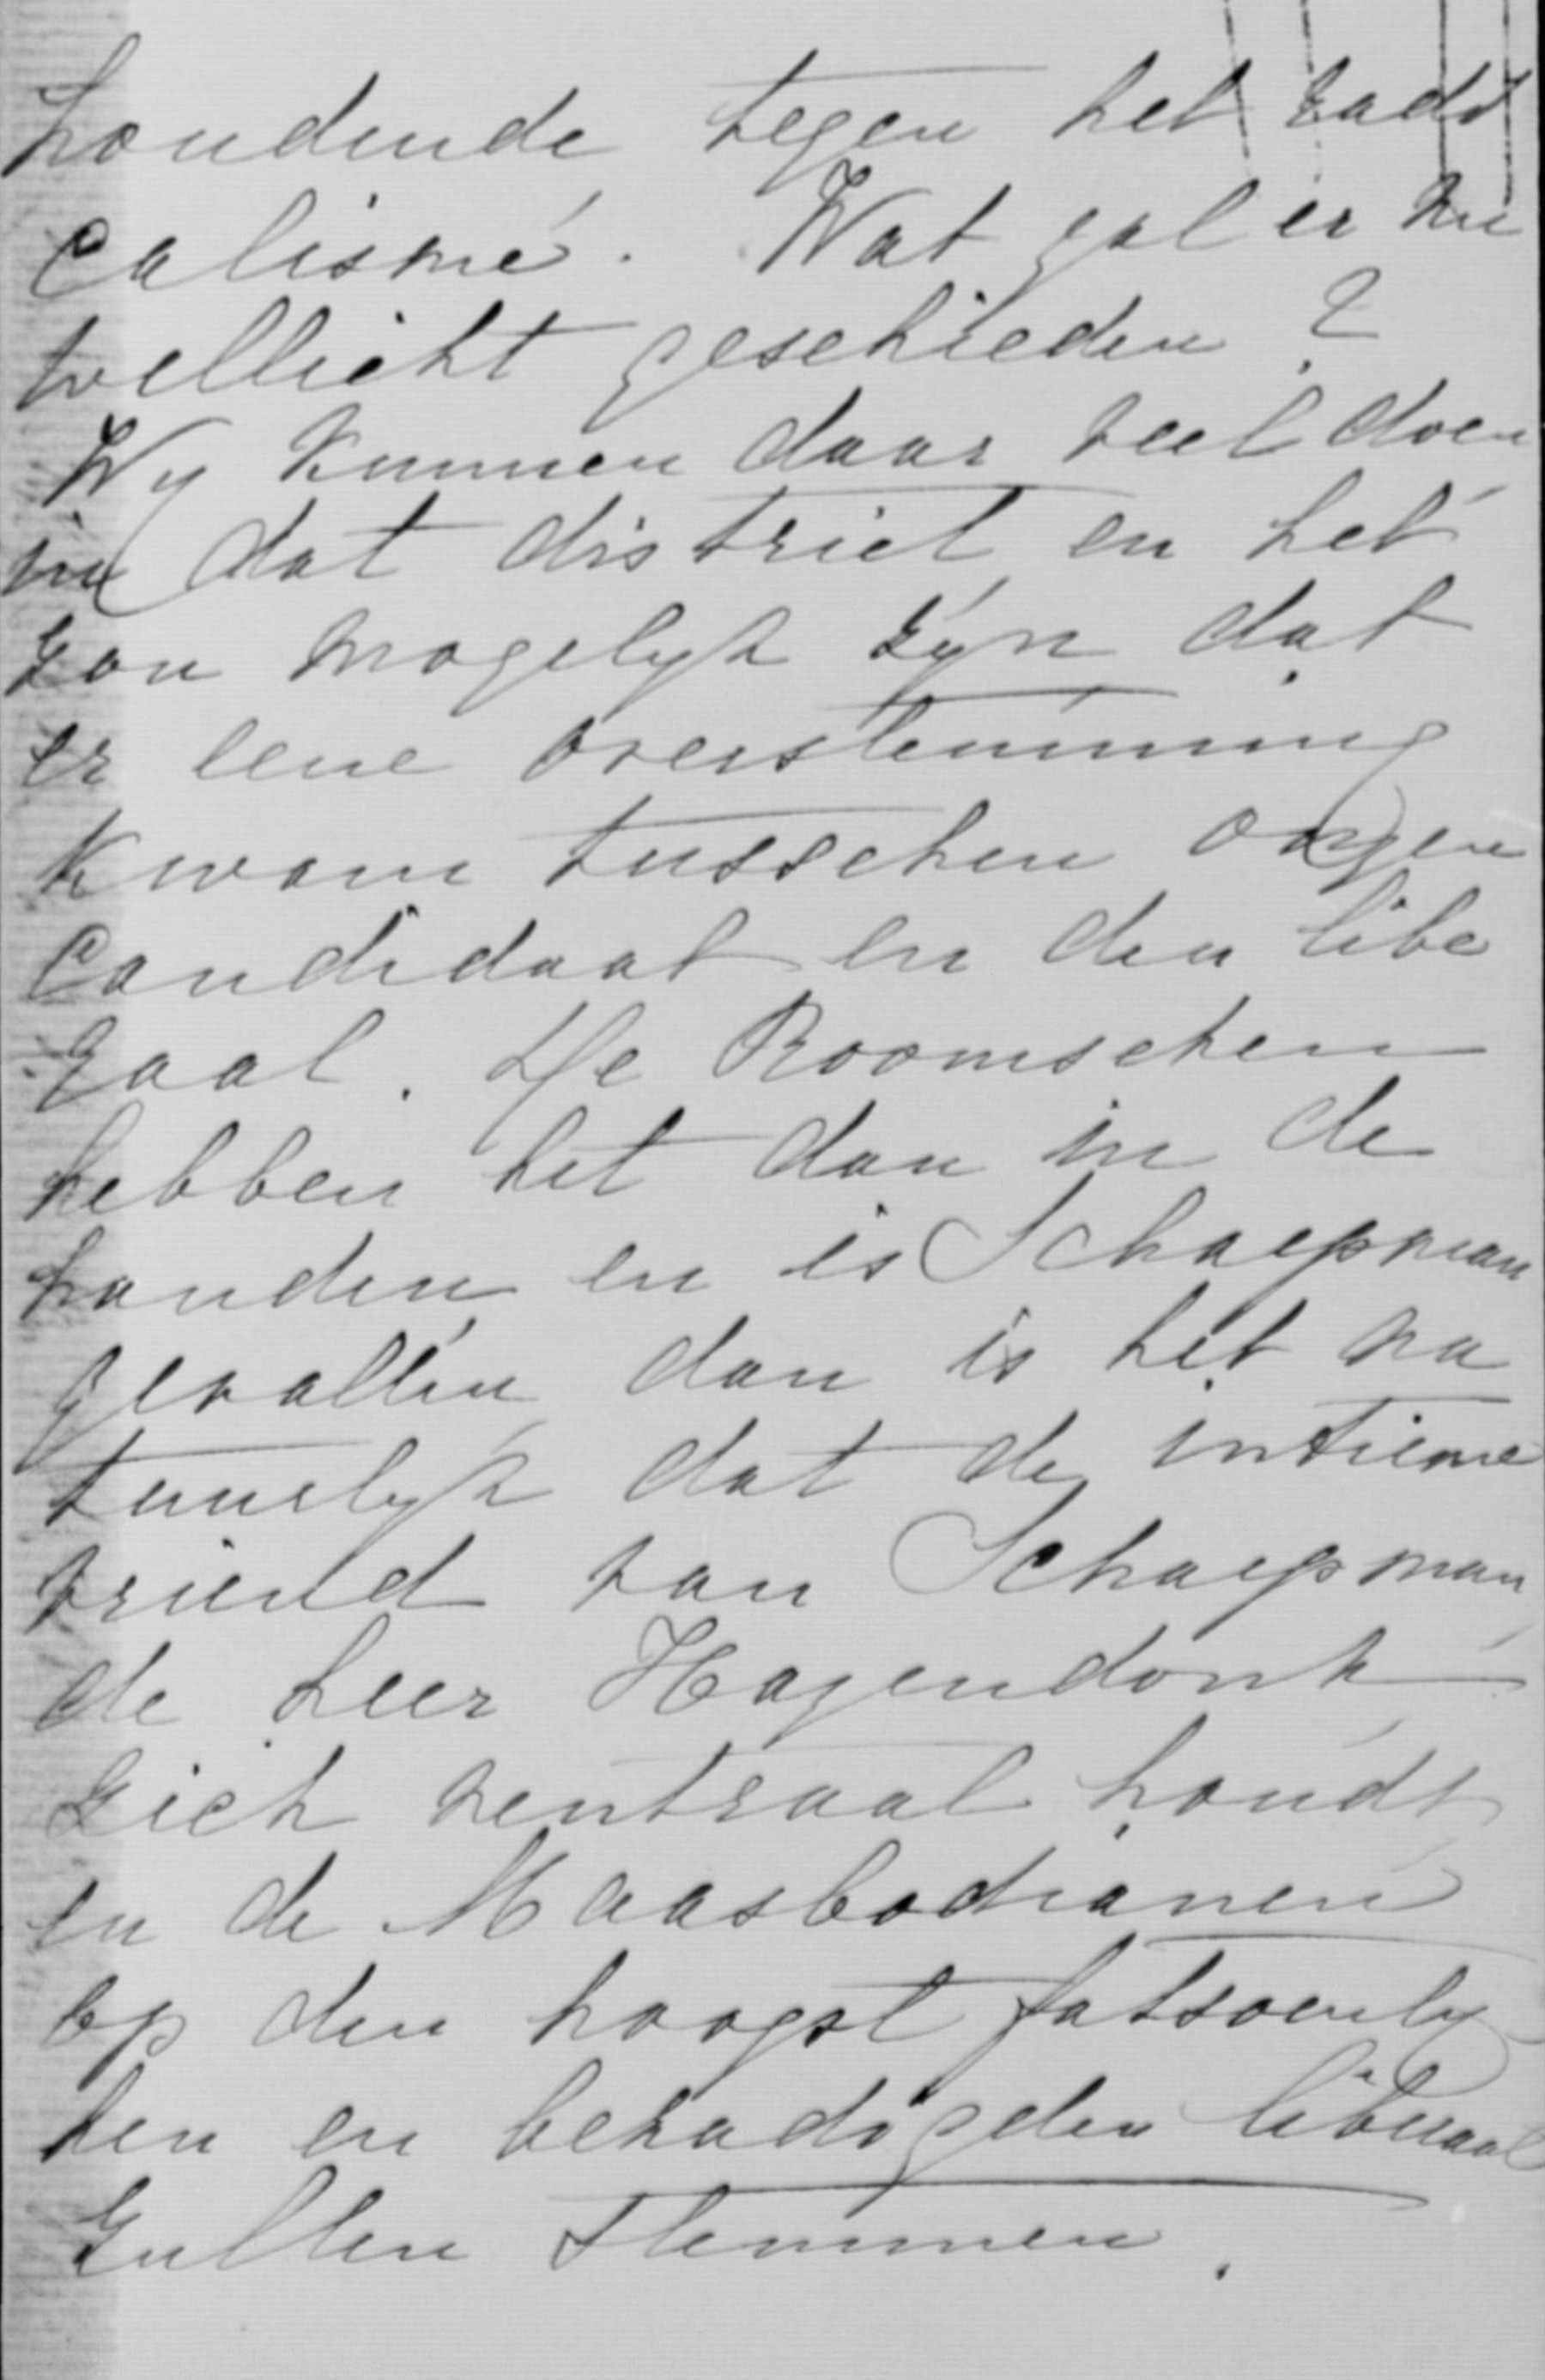 houdende tegen het radi
calisme. Wat zal er nu
wellicht geschieden?
Wy kunnen daar veel doen
in dat district en het
zou mogelyk zyn dat
er eene overstemming
kwam tusschen onzen
Candidaat en den libe
raal. De Roomschen
hebben het dan in de
handen en is Schaepman
gevallen dan is het na
tuurlyk dat de intieme
vriend van Schaepman
de heer Hazendonk
zich neutraal houdt
en de Maasbodianen
op den hoogst fatsoenly
ken en bezadigden liberaal
zullen stemmen.